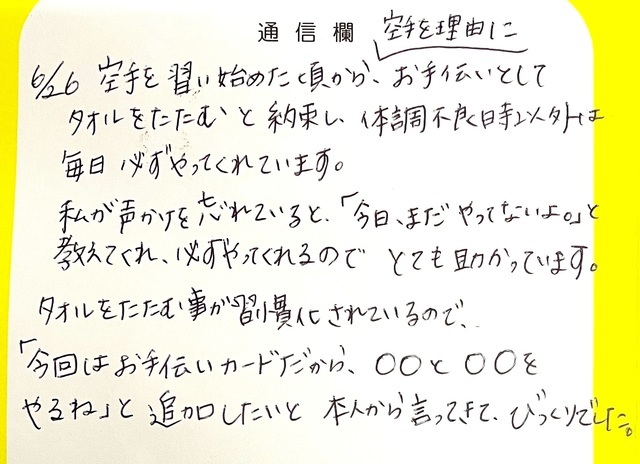 通信欄
空手を理由に
6/26 空手を習い始めた頃から、お手伝いとして
タオルをたたむと約束し、体調不良時以外は
毎日必ずやってくれています。
私が声かけを忘れていると、「今日、まだやってないよ。」と
教えてくれ、必ずやってくれるのでとても助かっています。
タオルをたたむ事が習慣化されているので、
「今回はお手伝いカードだから、〇〇と〇〇を
やるね」と追加したいと本人から言ってきて、びっくりでした。